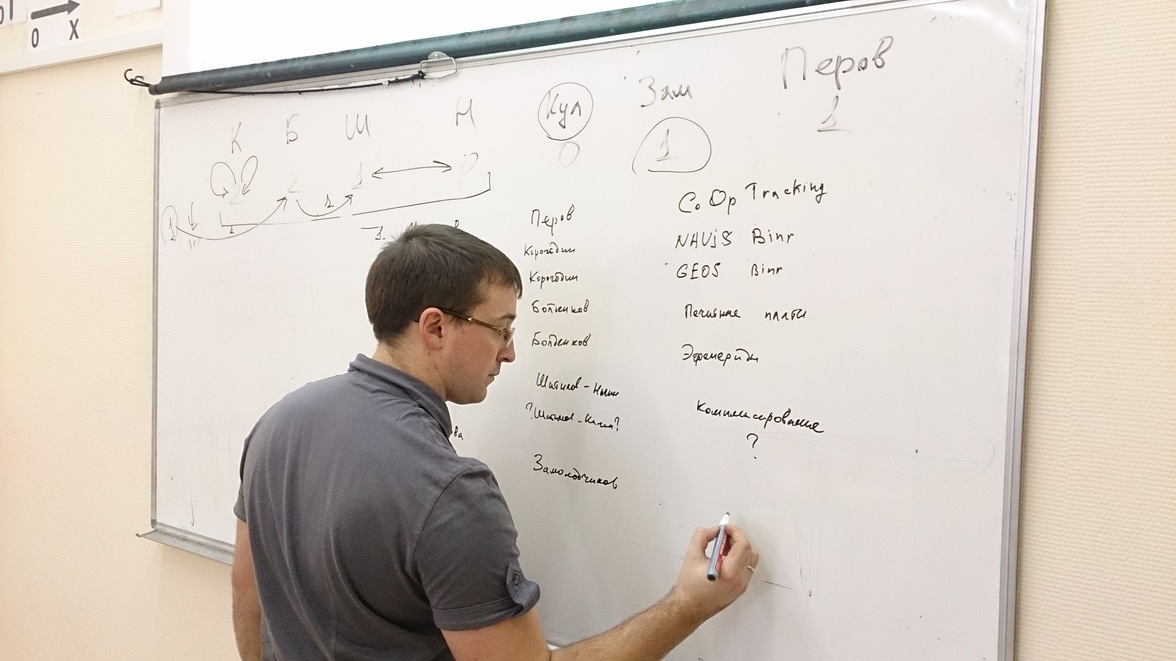 0 X
К Б Ш Н Кул Зам Перов
2 1 0 0 1 1
1 1 2
Перов CoOp Tracking
Корогодин NAVIS Binr
Корогодин GEOS Binr
Болденков Печатные платы
Болденков Эфемериды
Шатилов - Нагин
?Шатилов - Нагин? Комплексирование
?
Замолодчиков